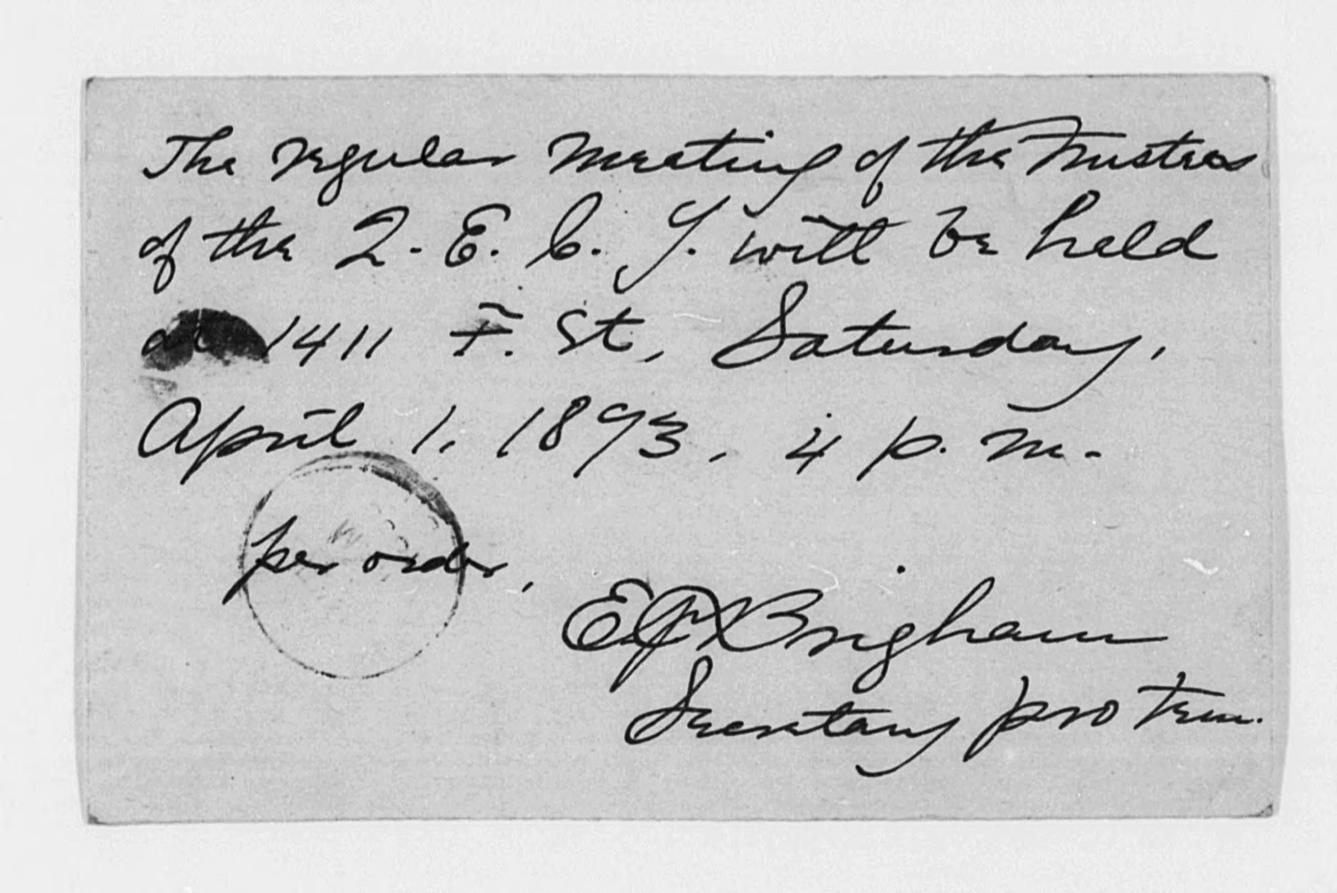 The regular meeting of the Trustees
of the Q. E. C. Y. will be held
at 1411 F. St, Saturday,
April 1, 1893, 4 p. m.
per order,
E F Brigham
Secretary pro tem.